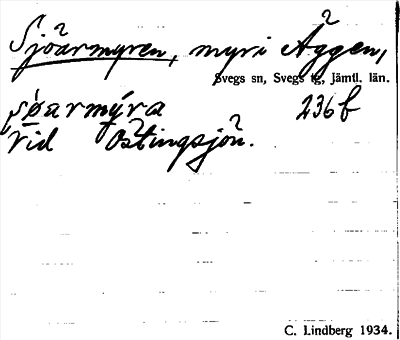 Sjöarmyren, myr i Åggen,
Svegs sn, Svegs tg, Jämtl. län.
søarmýra 236 f
vid Östingsjön.
C. Lindberg 1934.